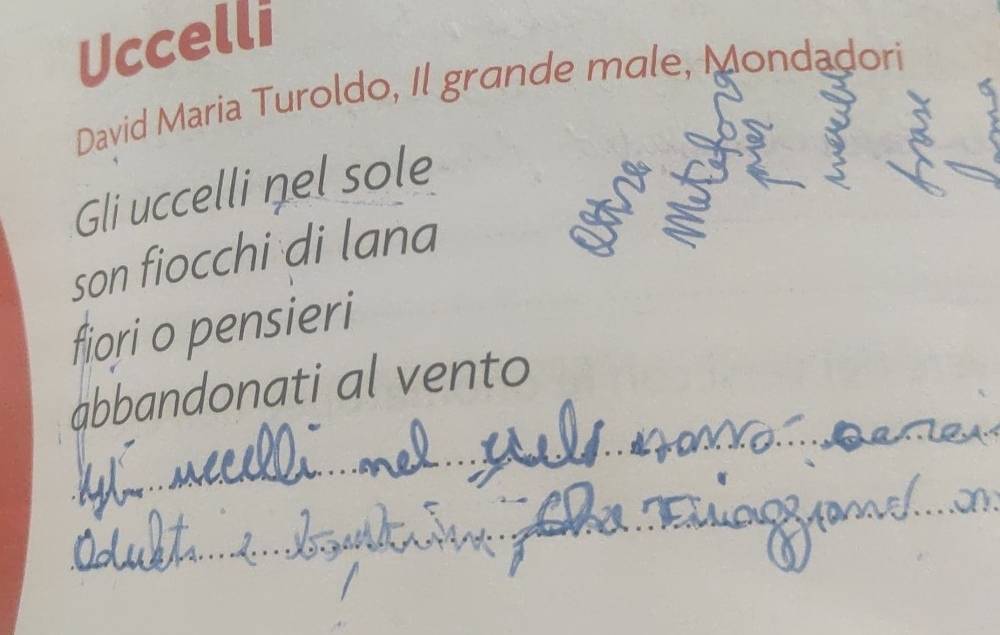 Uccelli
David Maria Turoldo, Il grande male, Mondadori
Gli uccelli nel sole
son fiocchi di lana
fiori o pensieri
abbandonati al vento
Gli uccelli nel cielo sono aerei
Adulti e bambini che viaggiano
Altre
Metafora
per
frase